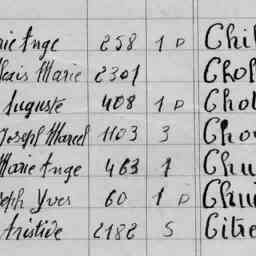 rie Ange 258 1 D Chil
Marie 2301 Chol
Auguste 408 1 D Chol
Joseph Marcel 1103 3 Chou
Marie Ange 463 1 Chu
seph Yves 60 1 D Chu
Aristide 2182 5 Citre